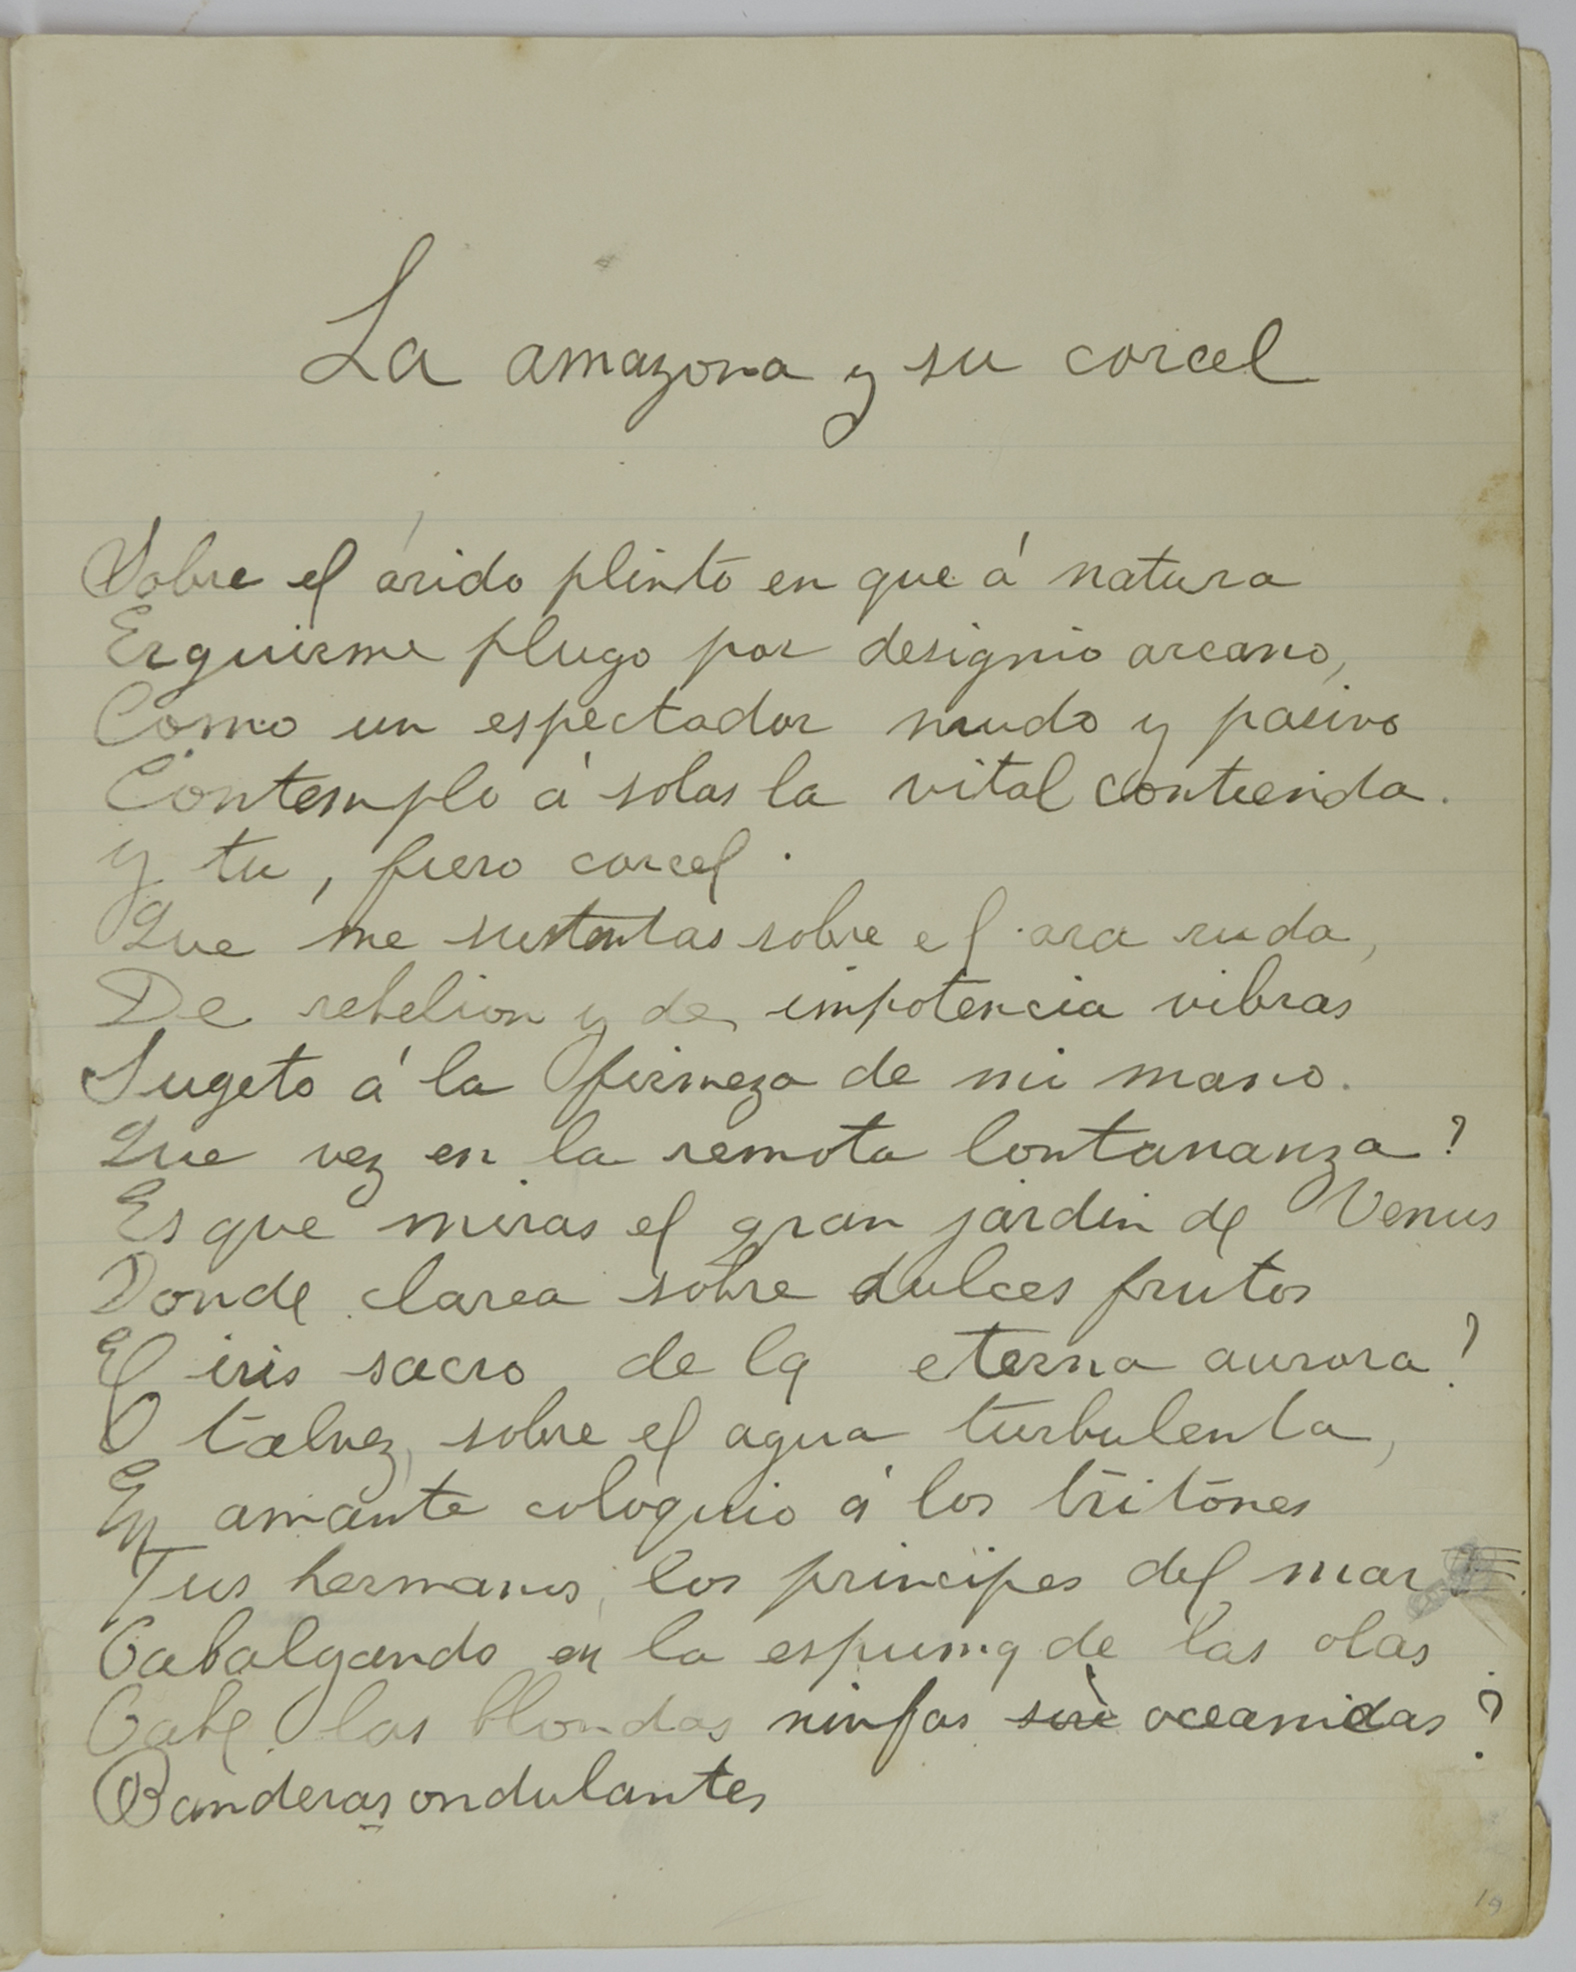 La amazona y su corcel
Sobre el árido plinto en que á natura
Erguirme plugo por designio arcano,
Como un espectador mudo y pasivo
Contemplo á solas la vital contienda.
y tu, fiero corcel.
Que me sustentas sobre el ara ruda,
De rebelion y de impotencia vibras
Sugeto á la firmeza de mi mano.
Que vez en la remota lontananza?
Es que miras el gran jardin de Venus
Donde clarea sobre dulces frutos
El iris sacro de la eterna aurora?
O talvez, sobre el agua turbulenta,
En amante coloquio á los tritones
Tus hermanos, los principes del mar
Cabalgando en la espuma de las olas
Cabe las blondas ninfas oceanidas?
Banderas ondulantes
19